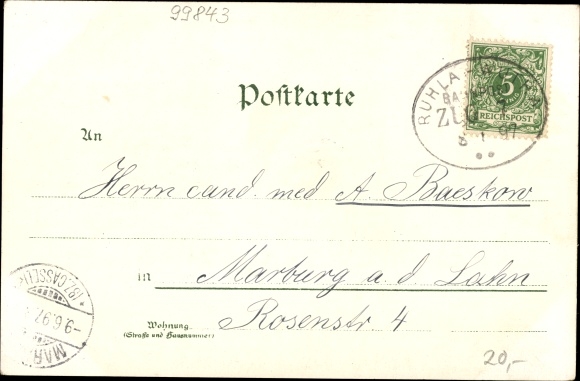 99843
5
REICHSPOST
RUHLA
ZUG
97
Postkarte
An
Herrn cand. med A. Baeskow
in Marburg a. d. Lahn
Wohnung
(Straße und Hausnummer)
Rosenstr 4
MAR
-9.6.97
(BZ. CASSEL)
20,-